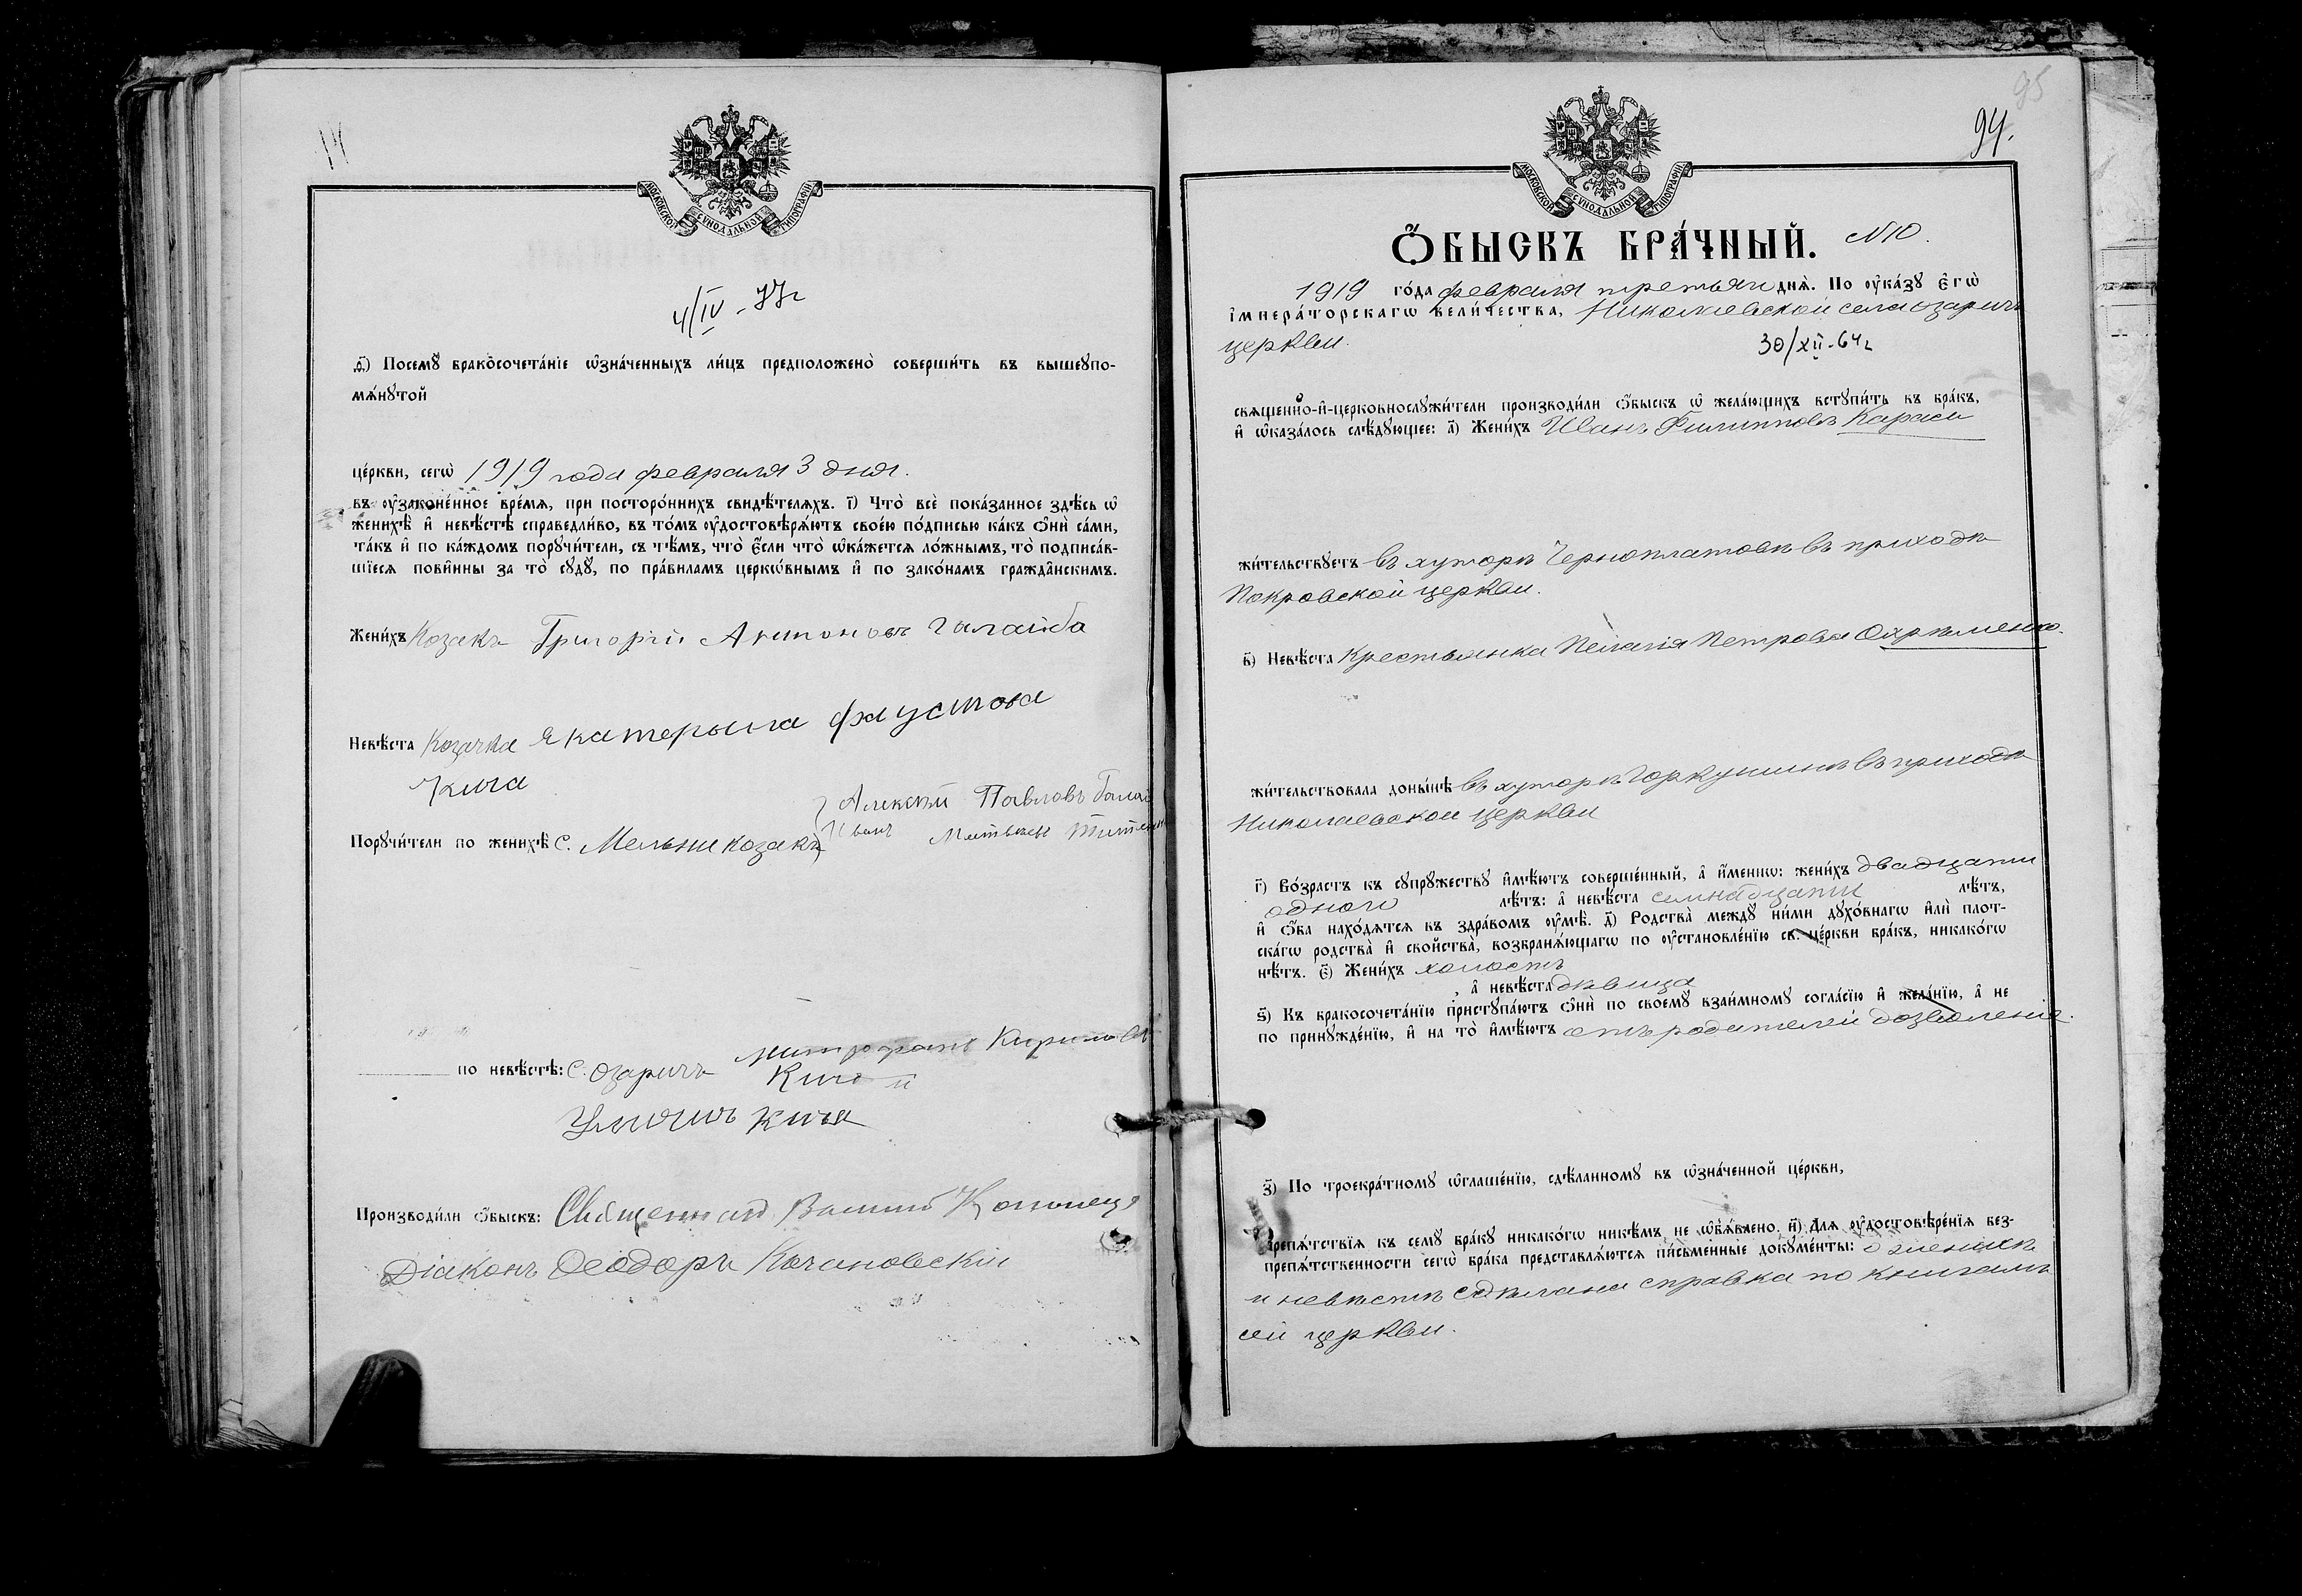 МОСКОВСКОЙ СУНОДАЛЬНОЙ ТИПОГРАФІИ
4/IV - 77г
Ѳ҃) Посемꙋ̀ бракосочета́нїе ѡ҆зна́ченныхъ ли́цъ предположено̀ соверши́ть въ вышеꙋпо-
мѧ́нꙋтой
це́ркви, сегѡ̀ 1919 года февраля 3 дня.
въ ᲂу҆зако́ненное вре́мѧ, при посторо́ннихъ свидѣ́телѧхъ. І҃) Что̀ всѐ пока́занное здѣ́сь ѡ҆
женихѣ̀ и҆ невѣ́стѣ справедли́во, въ то́мъ ᲂу҆достовѣрѧ́ютъ свое́ю по́дписью ка́къ ѻ҆нѝ са́ми,
та́къ и҆ по ка́ждомъ порꙋчи́тели, съ тѣ́мъ, что̀ є҆́сли что̀ ѡ҆ка́жетсѧ ло́жнымъ, то̀ подписа́в-
шїесѧ пови́нны за то̀ сꙋдꙋ̀, по пра́виламъ церкѡ́внымъ и҆ по зако́намъ гражда̑нскимъ.
Жени́хъ Козакъ Григорій Антоновъ Галайба
Невѣ́ста Козачка Екатерына Фаустова
Кича
Алексѣй Павловъ
Порꙋчи́тели по женихѣ̀ с. Мельни козакъ Иванъ
по невѣ́стѣ: с. Озаричъ Митрофанъ Кириловъ
Кича и
Кича
Производи́ли ѻ҆́быскъ: Священникъ
Діаконъ Ѳеодоръ Качановскій
95
94.
МОСКОВСКОЙ СУНОДАЛЬНОЙ ТИПОГРАФІИ
Ѻ҆́БЫСКЪ БРА́ЧНЫЙ. N10.
1919 го́да февраля третьяго днѧ̀. По ᲂу҆ка́зꙋ Є҆гѡ̀
І҆мпера́торскагѡ Вели́чества, Николаевской села Озаричъ
церкви.
30/XII-64г
свѧщенно-и҆-церковнослꙋжи́тели производи́ли ѻ҆́быскъ ѡ҆ жела́ющихъ встꙋпи́ть въ бра́къ,
и҆ ѡ҆каза́лось слѣ́дꙋющее: А҃) Жени́хъ Иванъ Филипповъ Карась
жи́тельствꙋетъ въ хуторѣ Черноплатовкѣ въ приходѣ
Покровской церкви.
В҃) Невѣ́ста Крестьянка Пелагія Петрова Охрѣменко.
жи́тельствовала доны́нѣ въ хуторѣ Горкушинѣ въ приходѣ
Николаевской церкви
Г҃) Во́зрастъ къ сꙋпрꙋ́жествꙋ и҆мѣ́ютъ соверше́нный, а҆ и҆́менно: жени́хъ двадцати
одного лѣ́тъ: а҆ невѣ́ста семнадцати лѣ́тъ,
и҆ ѻ҆́ба нахо́дѧтсѧ въ здра́вомъ ᲂу҆мѣ̀. Д҃) Родства̀ междꙋ̀ ни́ми дꙋхо́внагѡ и҆лѝ пло́т-
скагѡ родства̀ и҆ сво́йства, возбранѧ́ющагѡ по ᲂу҆становле́нїю св. це́ркви бра́къ, никако́гѡ
нѣ́тъ. Є҃) Жени́хъ холостъ
, а҆ невѣ́ста дѣвица
Ѕ҃) Къ бракосочета́нїю пристꙋпа́ютъ ѻ҆нѝ по своемꙋ̀ взаи́мномꙋ согла́сїю и҆ жела́нїю, а҆ не
по принꙋжде́нїю, и҆ на то̀ и҆мѣ́ютъ отъ родителей дозволеніе.
З҃) По троекра́тномꙋ ѡ҆глаше́нїю, сдѣ́ланномꙋ въ ѡ҆зна́ченной це́ркви,
препѧ́тствїѧ къ семꙋ̀ бра́кꙋ никако́гѡ никѣ́мъ не ѡ҆б̾ѧ́влено. И҃) Длѧ ᲂу҆достовѣре́нїѧ без-
препѧ́тственности сегѡ̀ бра́ка представлѧ́ютсѧ пи́сьменные докꙋме́нты: о женихѣ
и невѣстѣ сдѣлана справка по книгамъ
сей церкви.